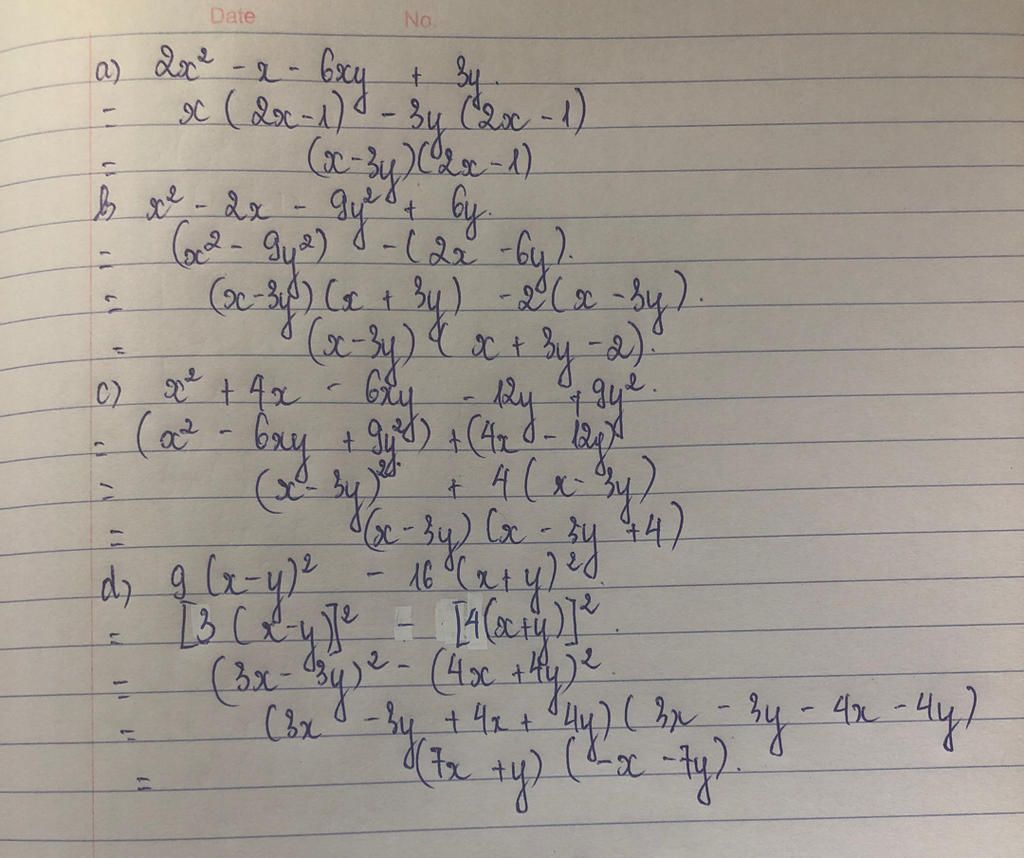 Date No.
a) 2x² - x - 6xy + 3y.
= x(2x-1) - 3y(2x-1)
= (x-3y)(2x-1)
b) x² - 2x - 9y² + 6y.
= (x² - 9y²) - (2x - 6y).
= (x-3y)(x + 3y) - 2(x - 3y).
= (x-3y)(x + 3y - 2).
c) x² + 4x - 6xy - 12y + 9y².
= (x² - 6xy + 9y²) + (4x - 12y)
= (x - 3y)² + 4(x - 3y)
= (x-3y)(x - 3y + 4)
d) 9(x-y)² - 16(x+y)².
= [3(x-y)]² - [4(x+y)]².
= (3x - 3y)² - (4x + 4y)².
= (3x - 3y + 4x + 4y)(3x - 3y - 4x - 4y)
= (7x + y)(-x - 7y).